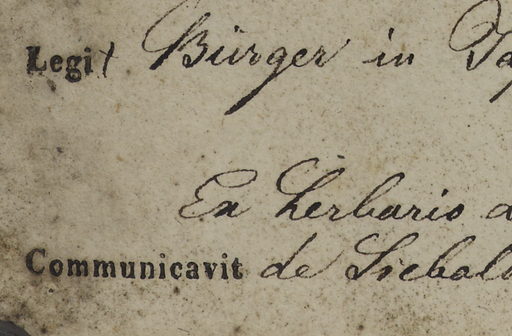 Legit Bürger in Ja
Ex herbario d
Communicavit de Siebol